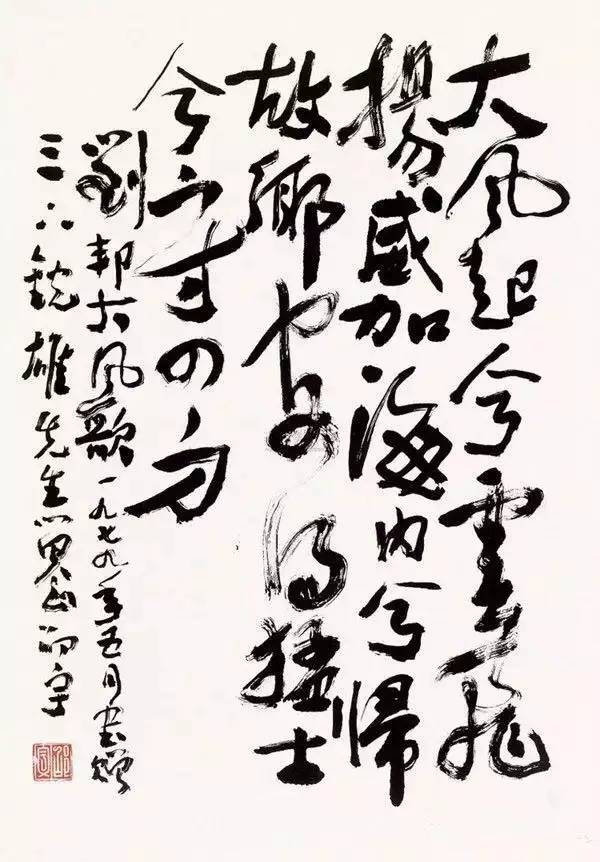 大風起兮雲飛
揚威加海內兮歸
故鄉安得猛士
兮守四方
劉邦大風歌一九七九年五月書贈
雄先生 邵宇
邵宇